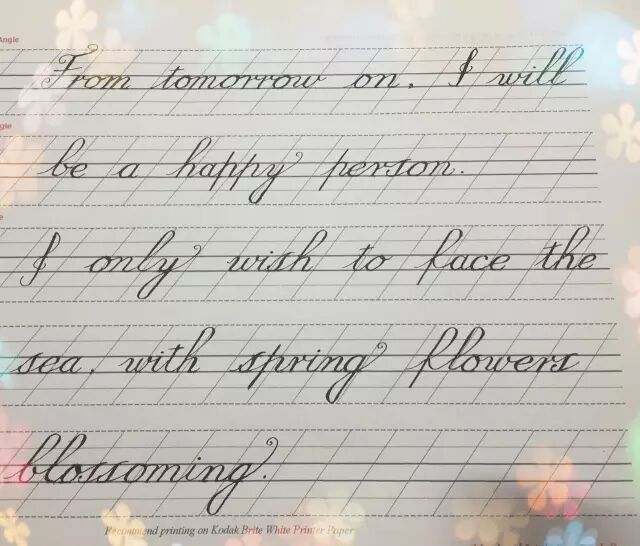 Angle
From tomorrow on, I will
gle
be a happy person.
e
I only wish to face the
sea, with spring flowers
blossoming.
Recommend printing on Kodak Brite White Printer Paper